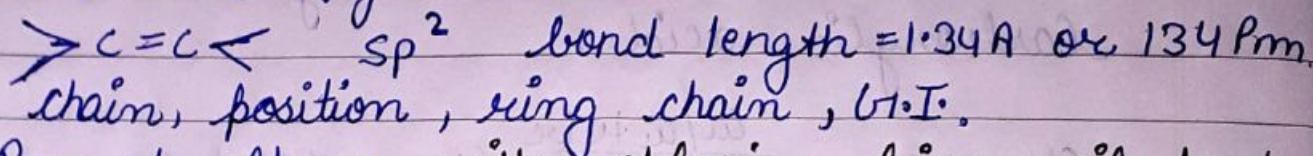 >C=C< sp² bond length = 1.34A or 134 Pm.
chain, position, ring chain, G.I.